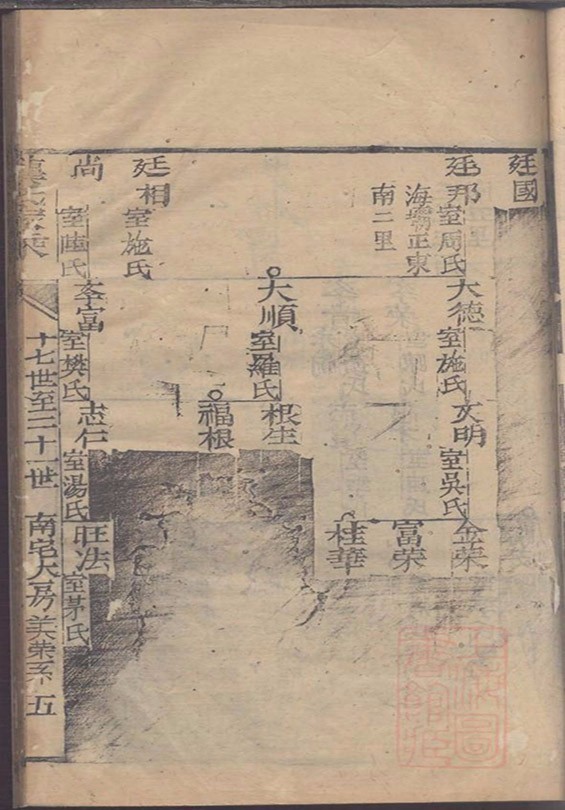 廷國
廷邦 室周氏
海壩正東
南二里
廷相 室施氏
尚 室陆氏
大德 室施氏
大順 室羅氏
孝富 室樊氏
文明 室吳氏
根生
福根
志仁 室湯氏
金榮
富荣
桂華
旺法 室茅氏
十七世至二十一世 南宅大房美荣系 五